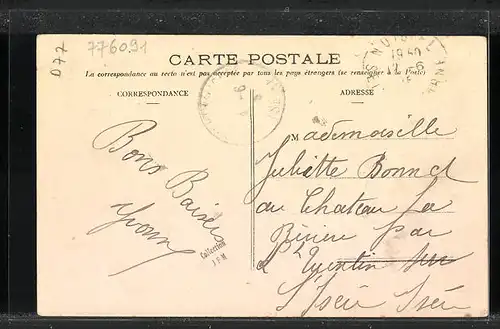 D77
776091
CARTE POSTALE
La correspondance au recto n'est pas acceptée par tous les pays étrangers (se renseigner à la Poste)
CORRESPONDANCE
ADRESSE
Mademoiselle
Juliette Bonnet
au Chateau La
par
St Quentin sur
Isère Isère
Bons Baisers
Yvonne
Collection